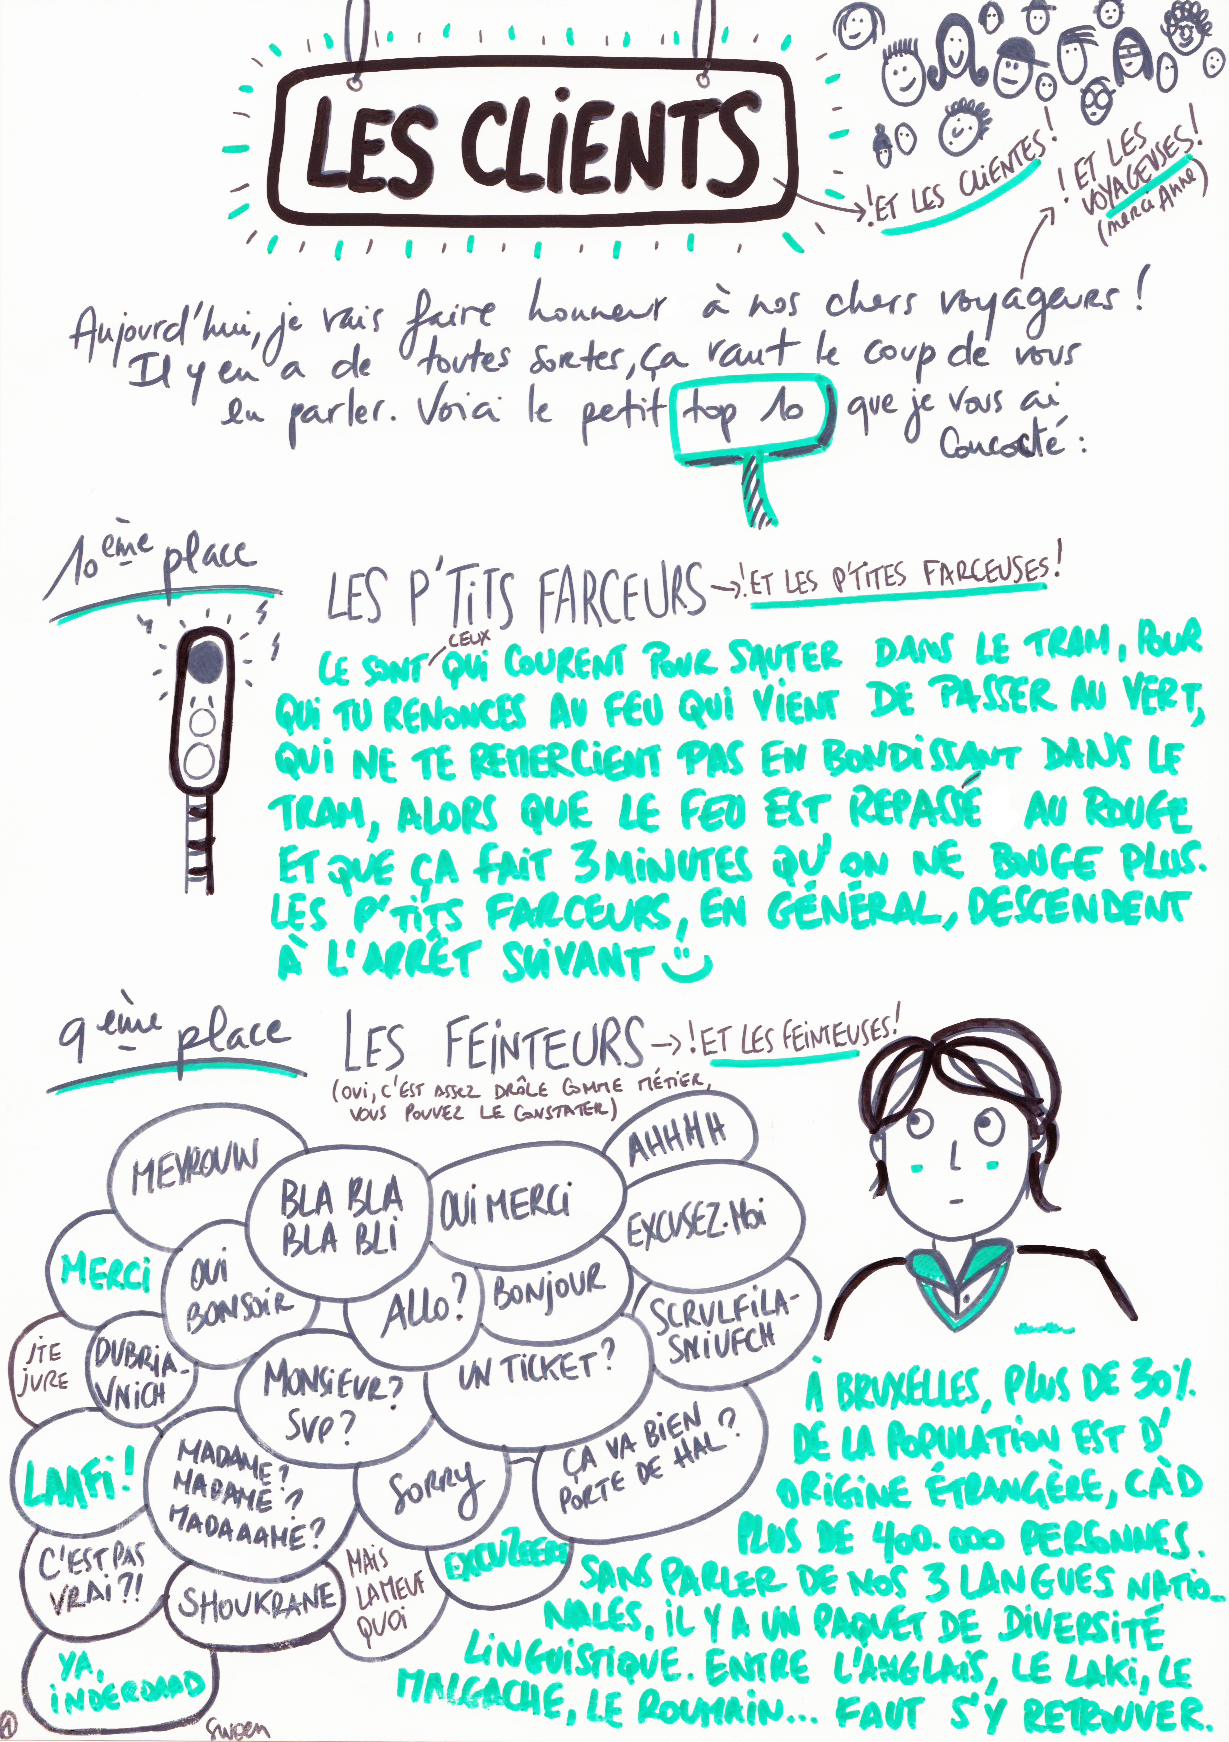 LES CLIENTS
!ET LES CLIENTES!
!ET LES
VOYAGEUSES!
(merci Anne)
Aujourd'hui, je vais faire honneur à nos chers voyageurs!
Il y en a de toutes sortes, ça vaut le coup de vous
en parler. Voici le petit top 10 que je vous ai
concocté :
10ème place
LES P'TITS FARCEURS → !ET LES P'TITES FARCEUSES!
CEUX
CE SONT QUI COURENT POUR SAUTER DANS LE TRAM, POUR
QUI TU RENONCES AU FEU QUI VIENT DE PASSER AU VERT,
QUI NE TE REMERCIENT PAS EN BONDISSANT DANS LE
TRAM, ALORS QUE LE FEU EST REPASSÉ AU ROUGE
ET QUE ÇA FAIT 3 MINUTES QU'ON NE BOUGE PLUS.
LES P'TITS FARCEURS, EN GÉNÉRAL, DESCENDENT
À L'ARRÊT SUIVANT
9ème place
LES FEINTEURS → !ET LES FEINTEUSES!
(OUI, C'EST ASSEZ DRÔLE COMME MÉTIER,
VOUS POUVEZ LE CONSTATER)
MEVROUW
BLA BLA
BLA BLI
OUI MERCI
AHHHH
EXCUSEZ-MOI
MERCI
OUI
BONSOIR
ALLO?
BONJOUR
SCRULFILA-
SNIUFCH
JTE
JURE
DUBRIA-
VNICH
MONSIEUR?
SVP?
UN TICKET?
LAAFI!
MADAME?
MADAME?
MADAAAME?
SORRY
ÇA VA BIEN
PORTE DE HAL?
C'EST PAS
VRAI?!
SHOUKRANE
MAIS
LA MEUF
QUOI
EXCUZEERE
YA,
INDERDAAD
À BRUXELLES, PLUS DE 30%
DE LA POPULATION EST D'
ORIGINE ÉTRANGÈRE, CÀD
PLUS DE 400.000 PERSONNES.
SANS PARLER DE NOS 3 LANGUES NATIO-
NALES, IL Y A UN PAQUET DE DIVERSITÉ
LINGUISTIQUE. ENTRE L'ANGLAIS, LE LAKI, LE
MALGACHE, LE ROUMAIN... FAUT S'Y RETROUVER.
1
Gwoen